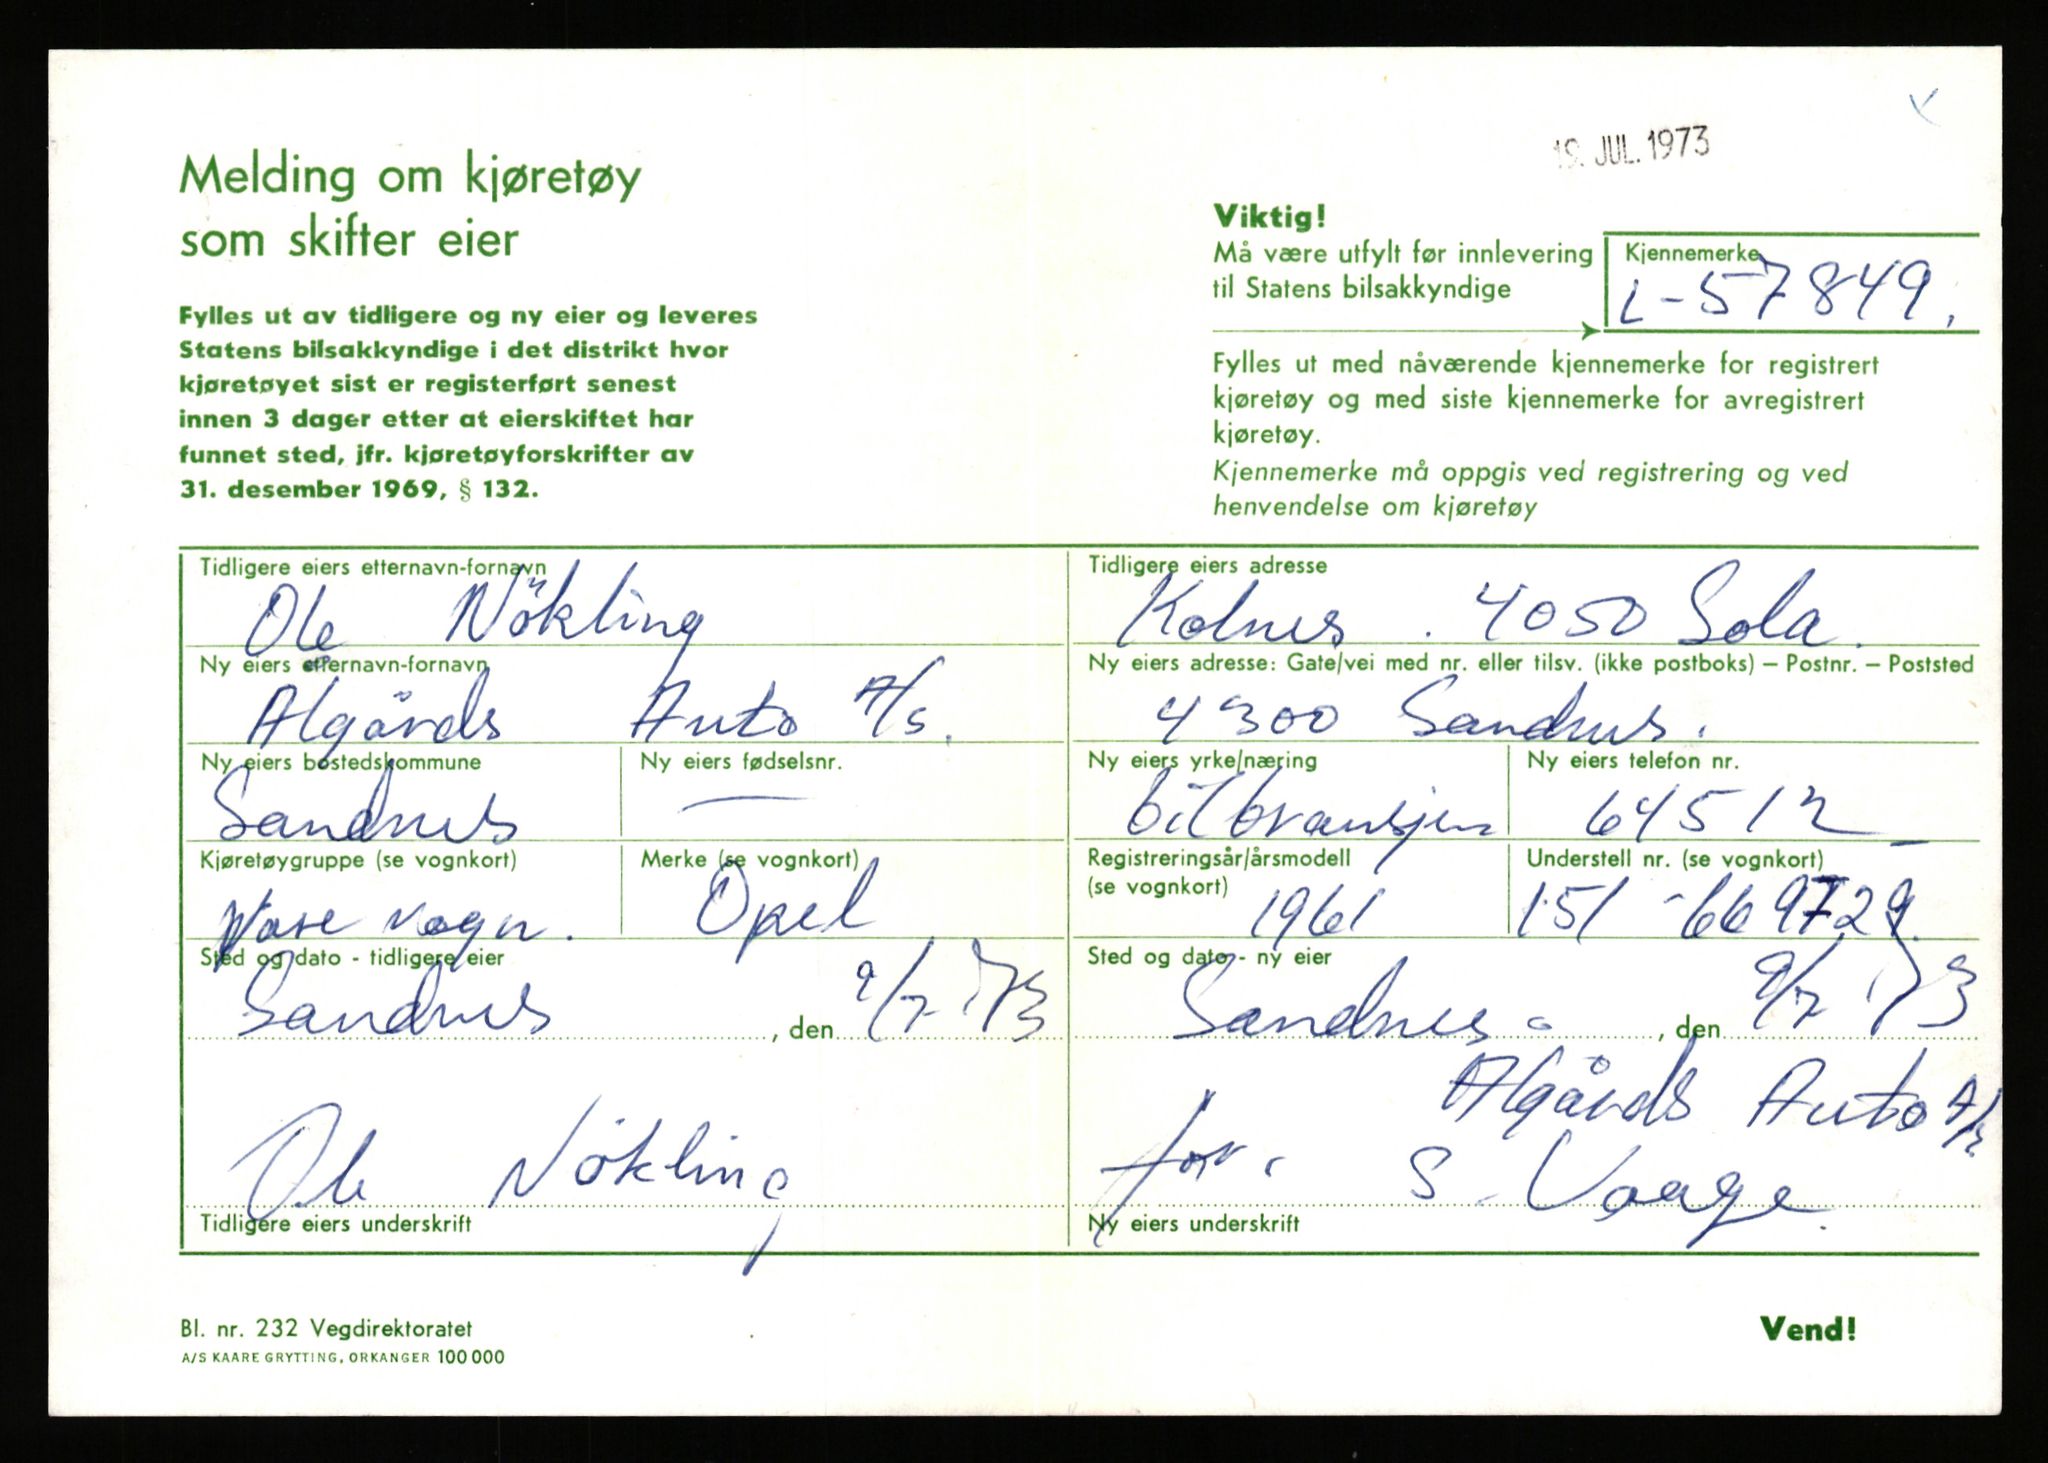 19. JUL. 1973
Melding om kjøretøy
som skifter eier
Fylles ut av tidligere og ny eier og leveres
Statens bilsakkyndige i det distrikt hvor
kjøretøyet sist er registerført senest
innen 3 dager etter at eierskiftet har
funnet sted, jfr. kjøretøyforskrifter av
31. desember 1969, § 132.
Viktig!
Må være utfylt før innlevering
til Statens bilsakkyndige
Kjennemerke
L-57849.
Fylles ut med nåværende kjennemerke for registrert
kjøretøy og med siste kjennemerke for avregistrert
kjøretøy.
Kjennemerke må oppgis ved registrering og ved
henvendelse om kjøretøy
Tidligere eiers etternavn-fornavn
Ole Nökling
Tidligere eiers adresse
Kolnes. 4050 Sola.
Ny eiers etternavn-fornavn
Algårds Auto A/S.
Ny eiers adresse: Gate/vei med nr. eller tilsv. (ikke postboks) – Postnr. – Poststed
4300 Sandnes.
Ny eiers bostedskommune
Sandnes
Ny eiers fødselsnr.
—
Ny eiers yrke/næring
bilbransjen
Ny eiers telefon nr.
64512
Kjøretøygruppe (se vognkort)
Vare vogn.
Merke (se vognkort)
Opel
Registreringsår/årsmodell
(se vognkort)
1961
Understell nr. (se vognkort)
151-669729.
Sted og dato - tidligere eier
Sandnes, den 9/7-73
Sted og dato - ny eier
Sandnes, den 9/7 73
Algårds Auto A/S
Ole Nökling
for. S. Vaage.
Tidligere eiers underskrift
Ny eiers underskrift
Bl. nr. 232 Vegdirektoratet
A/S KAARE GRYTTING, ORKANGER 100 000
Vend!